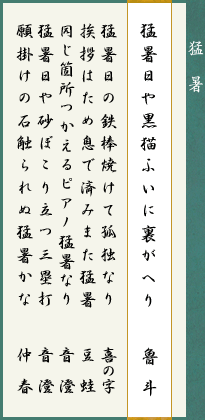 猛暑
猛暑日や黒猫ふいに裏がへり　魯斗
猛暑日の鉄棒焼けて孤独なり　喜の字
挨拶はため息で済みまた猛暑　豆蛙
同じ箇所つかえるピアノ猛暑なり　音澄
猛暑日や砂ぼこり立つ三塁打　音澄
願掛けの石触られぬ猛暑かな　仲春